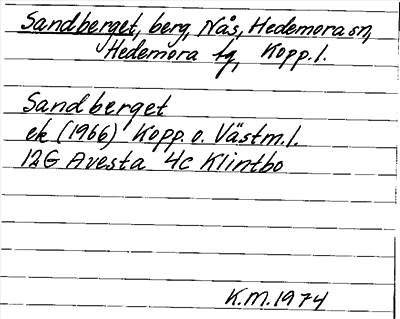 Sandberget, berg, Nås, Hedemora sn,
Hedemora tg, Kopp.l.
Sandberget
ek (1966) Kopp. o. Västm.l.
12G Avesta 4c Klintbo
K.M. 1974